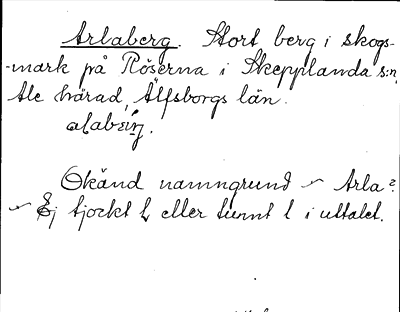 Arlaberg. Stort berg i skogs-
-mark på Röserna i Skepplanda s:n,
Ale härad, Älfsborgs län.
Okänd namngrund ~ Arla?
~ Ej tjockt l, eller tunnt l i uttalet.